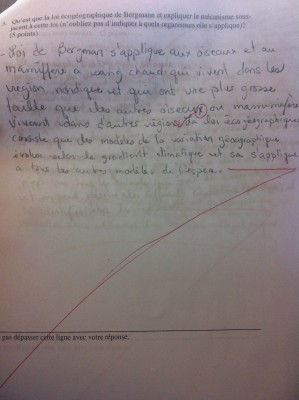 s. Qu'est que la loi écogéographique de Bergmann et expliquer le mécanisme sous-
jacent à cette loi (n'oubliez pas d'indiquer à quels organismes elle s'applique)?
(5 points)
- Loi de Bergman s'applique aux oiseaux et au
mamifère a sang chaud qui vivent dans les
region nordique et qui ont une plus grosse
taille que les autres oiseaux ou mammifères
vivant dans d'autres régions. la loi écogéographique
consiste que des modèles de la variation géographique
évolue selon le gradient climatique et sa s'applique
a tous les autres modèles de l'espèce.
pas dépasser cette ligne avec votre réponse.